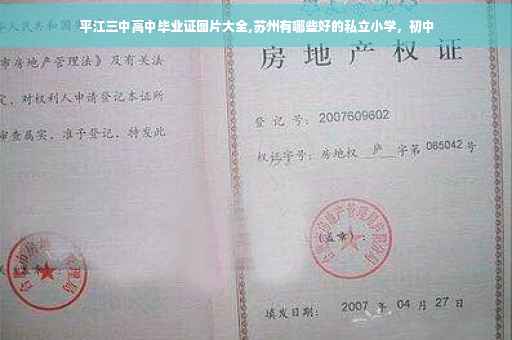 平江三中高中毕业证图片大全,苏州有哪些好的私立小学，初中
人民共和国
市房地产管理法》及有关法
定，对权利人申请登记本证所
审查属实，准予登记，特发此
房地产
登记号：2007609602
权证字号：房地权 庐 字第 085042 号
(盖章)：
填发日期：2007 年 04 月 27 日